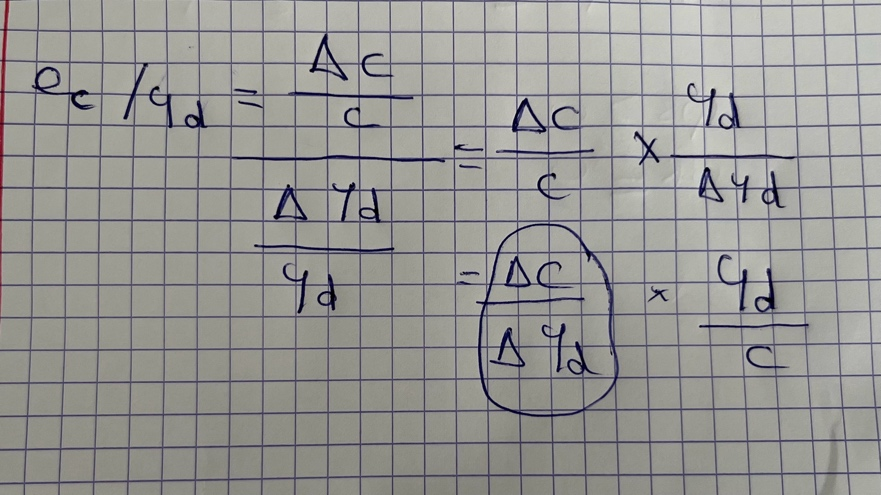 e_c / y_d = (Δc / c) / (Δy_d / y_d) = Δc / c × y_d / Δy_d
= Δc / Δy_d × y_d / c